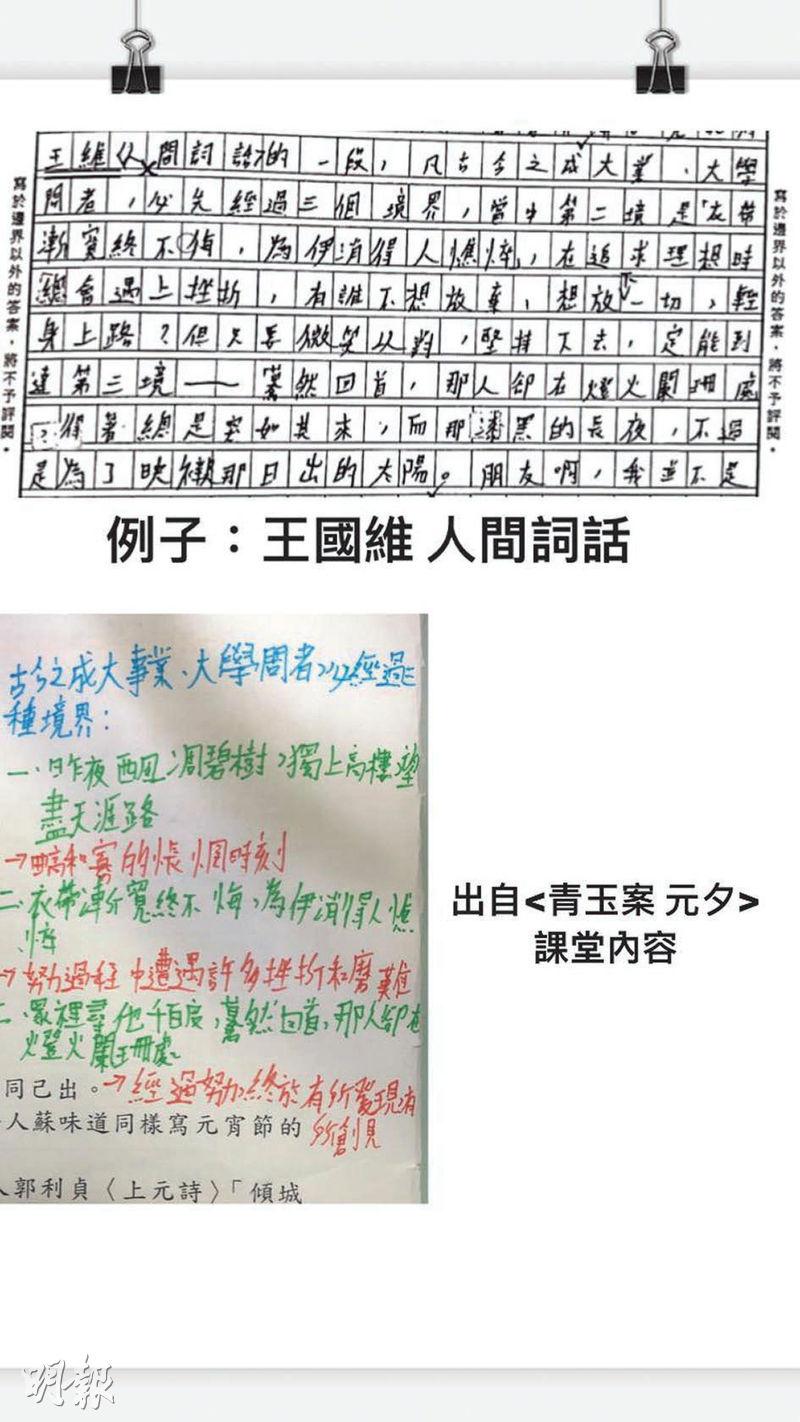 王維《人間詞話》的一段，凡古今之成大業、大學
問者，必先經過三個境界，當中第二境是「衣帶
漸寬終不悔，為伊消得人憔悴」，在追求理想時
總會遇上挫折，有誰不想放棄，想放下一切，輕
身上路？但只要微笑以對，堅持下去，定能到
達第三境——驀然回首，那人卻在燈火闌珊處
。得著總是突如其來，而那漆黑的長夜，不過
是為了映襯那日出的太陽。朋友啊，我並不是
寫於邊界以外的答案，將不予評閱。
寫於邊界以外的答案，將不予評閱。
例子：王國維 人間詞話
古今之成大事業、大學問者，必經過三
種境界：
一、昨夜西風凋碧樹，獨上高樓望
盡天涯路
的悵惘時刻
二、衣帶漸寬終不悔，為伊消得人憔
悴
→努力過程中遭遇許多挫折和磨難
三、眾裡尋他千百度，驀然回首，那人卻在
燈火闌珊處
同已出。→經過努力終於有所發現有
所創見
人蘇味道同樣寫元宵節的
人郭利貞〈上元詩〉「傾城
出自<青玉案 元夕>
課堂內容
明報